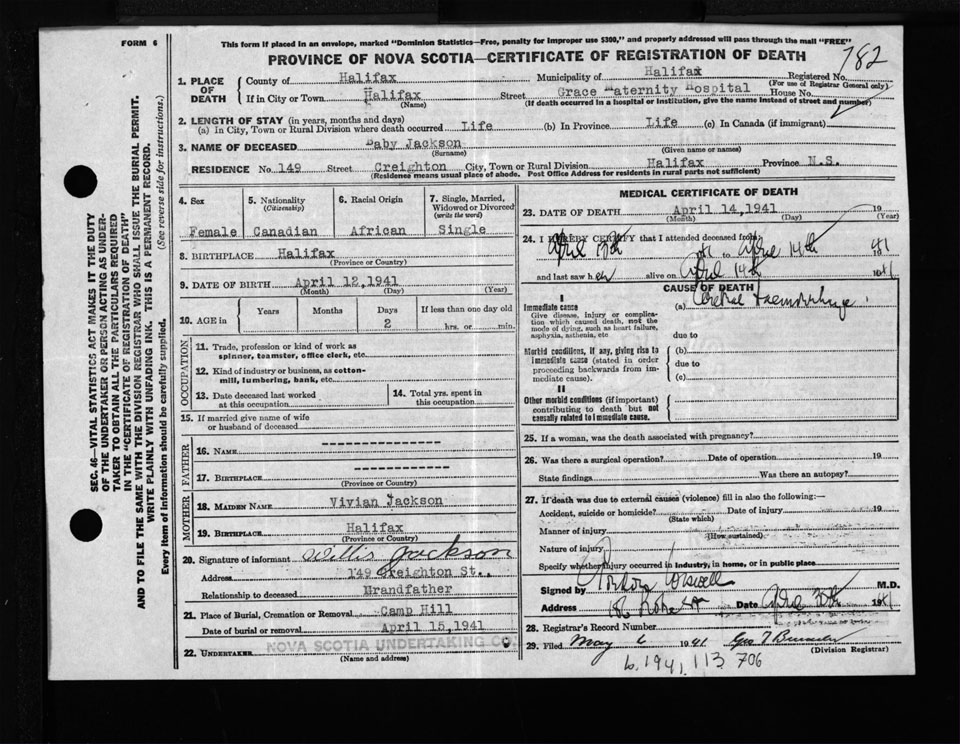 FORM 6
This form if placed in an envelope, marked "Dominion Statistics—Free, penalty for improper use $300," and properly addressed will pass through the mail "FREE"
PROVINCE OF NOVA SCOTIA—CERTIFICATE OF REGISTRATION OF DEATH
782
SEC. 46—VITAL STATISTICS ACT MAKES IT THE DUTY
OF THE UNDERTAKER OR PERSON ACTING AS UNDER-
TAKER TO OBTAIN ALL THE PARTICULARS REQUIRED
IN THE "CERTIFICATE OF REGISTRATION OF DEATH"
AND TO FILE THE SAME WITH THE DIVISION REGISTRAR WHO SHALL ISSUE THE BURIAL PERMIT.
WRITE PLAINLY WITH UNFADING INK. THIS IS A PERMANENT RECORD.
Every item of information should be carefully supplied. (See reverse side for instructions.)
1. PLACE OF DEATH
County of Halifax Municipality of Halifax Registered No.
(For use of Registrar General only)
If in City or Town Halifax Street Grace Maternity Hospital House No.
(Name) (If death occurred in a hospital or institution, give the name instead of street and number)
2. LENGTH OF STAY (in years, months and days)
(a) In City, Town or Rural Division where death occurred Life (b) In Province Life (c) In Canada (if immigrant)
3. NAME OF DECEASED Baby Jackson
(Surname) (Given name or names)
RESIDENCE No 149 Street Creighton City, Town or Rural Division Halifax Province N.S.
(Residence means usual place of abode. Post Office Address for residents in rural parts not sufficient)
4. Sex 5. Nationality (Citizenship) 6. Racial Origin 7. Single, Married, Widowed or Divorced (write the word)
Female Canadian African Single
8. BIRTHPLACE Halifax
(Province or Country)
9. DATE OF BIRTH April 12, 1941
(Month) (Day) (Year)
10. AGE in Years Months Days If less than one day old
2 hrs. or min.
OCCUPATION
11. Trade, profession or kind of work as
spinner, teamster, office clerk, etc
12. Kind of industry or business, as cotton-
mill, lumbering, bank, etc
13. Date deceased last worked
at this occupation
14. Total yrs. spent in
this occupation
15. If married give name of wife
or husband of deceased
FATHER
16. NAME --------------
17. BIRTHPLACE ------------
(Province or Country)
MOTHER
18. MAIDEN NAME Vivian Jackson
19. BIRTHPLACE Halifax
(Province or Country)
20. Signature of informant Willis Jackson
Address 149 Creighton St.,
Relationship to deceased Grandfather
21. Place of Burial, Cremation or Removal Camp Hill
Date of burial or removal April 15, 1941
22. UNDERTAKER NOVA SCOTIA UNDERTAKING CO.
(Name and address)
MEDICAL CERTIFICATE OF DEATH
23. DATE OF DEATH April 14, 1941 19
(Month) (Day) (Year)
24. I HEREBY CERTIFY that I attended deceased from
April 1941 to April 14th 1941
and last saw her alive on April 14th 1941
CAUSE OF DEATH
I
(a) Cerebral Haemorrhage
Immediate cause
Give disease, injury or complica-
tion which caused death, not the
mode of dying, such as heart failure,
asphyxia, asthenia, etc
due to
Morbid conditions, if any, giving rise to
immediate cause (stated in order
proceeding backwards from im-
mediate cause).
(b)
due to
(c)
II
Other morbid conditions (if important)
contributing to death but not
causally related to immediate cause.
25. If a woman, was the death associated with pregnancy?
26. Was there a surgical operation? Date of operation 19
State findings Was there an autopsy?
27. If death was due to external causes (violence) fill in also the following:—
Accident, suicide or homicide? Date of injury 19
(State which)
Manner of injury
(How sustained)
Nature of injury
Specify whether injury occurred in industry, in home, or in public place
Signed by M.D.
Address Date April 30th 1941
28. Registrar's Record Number
29. Filed May 6 1941
(Division Registrar)
b. 1941. 113 706